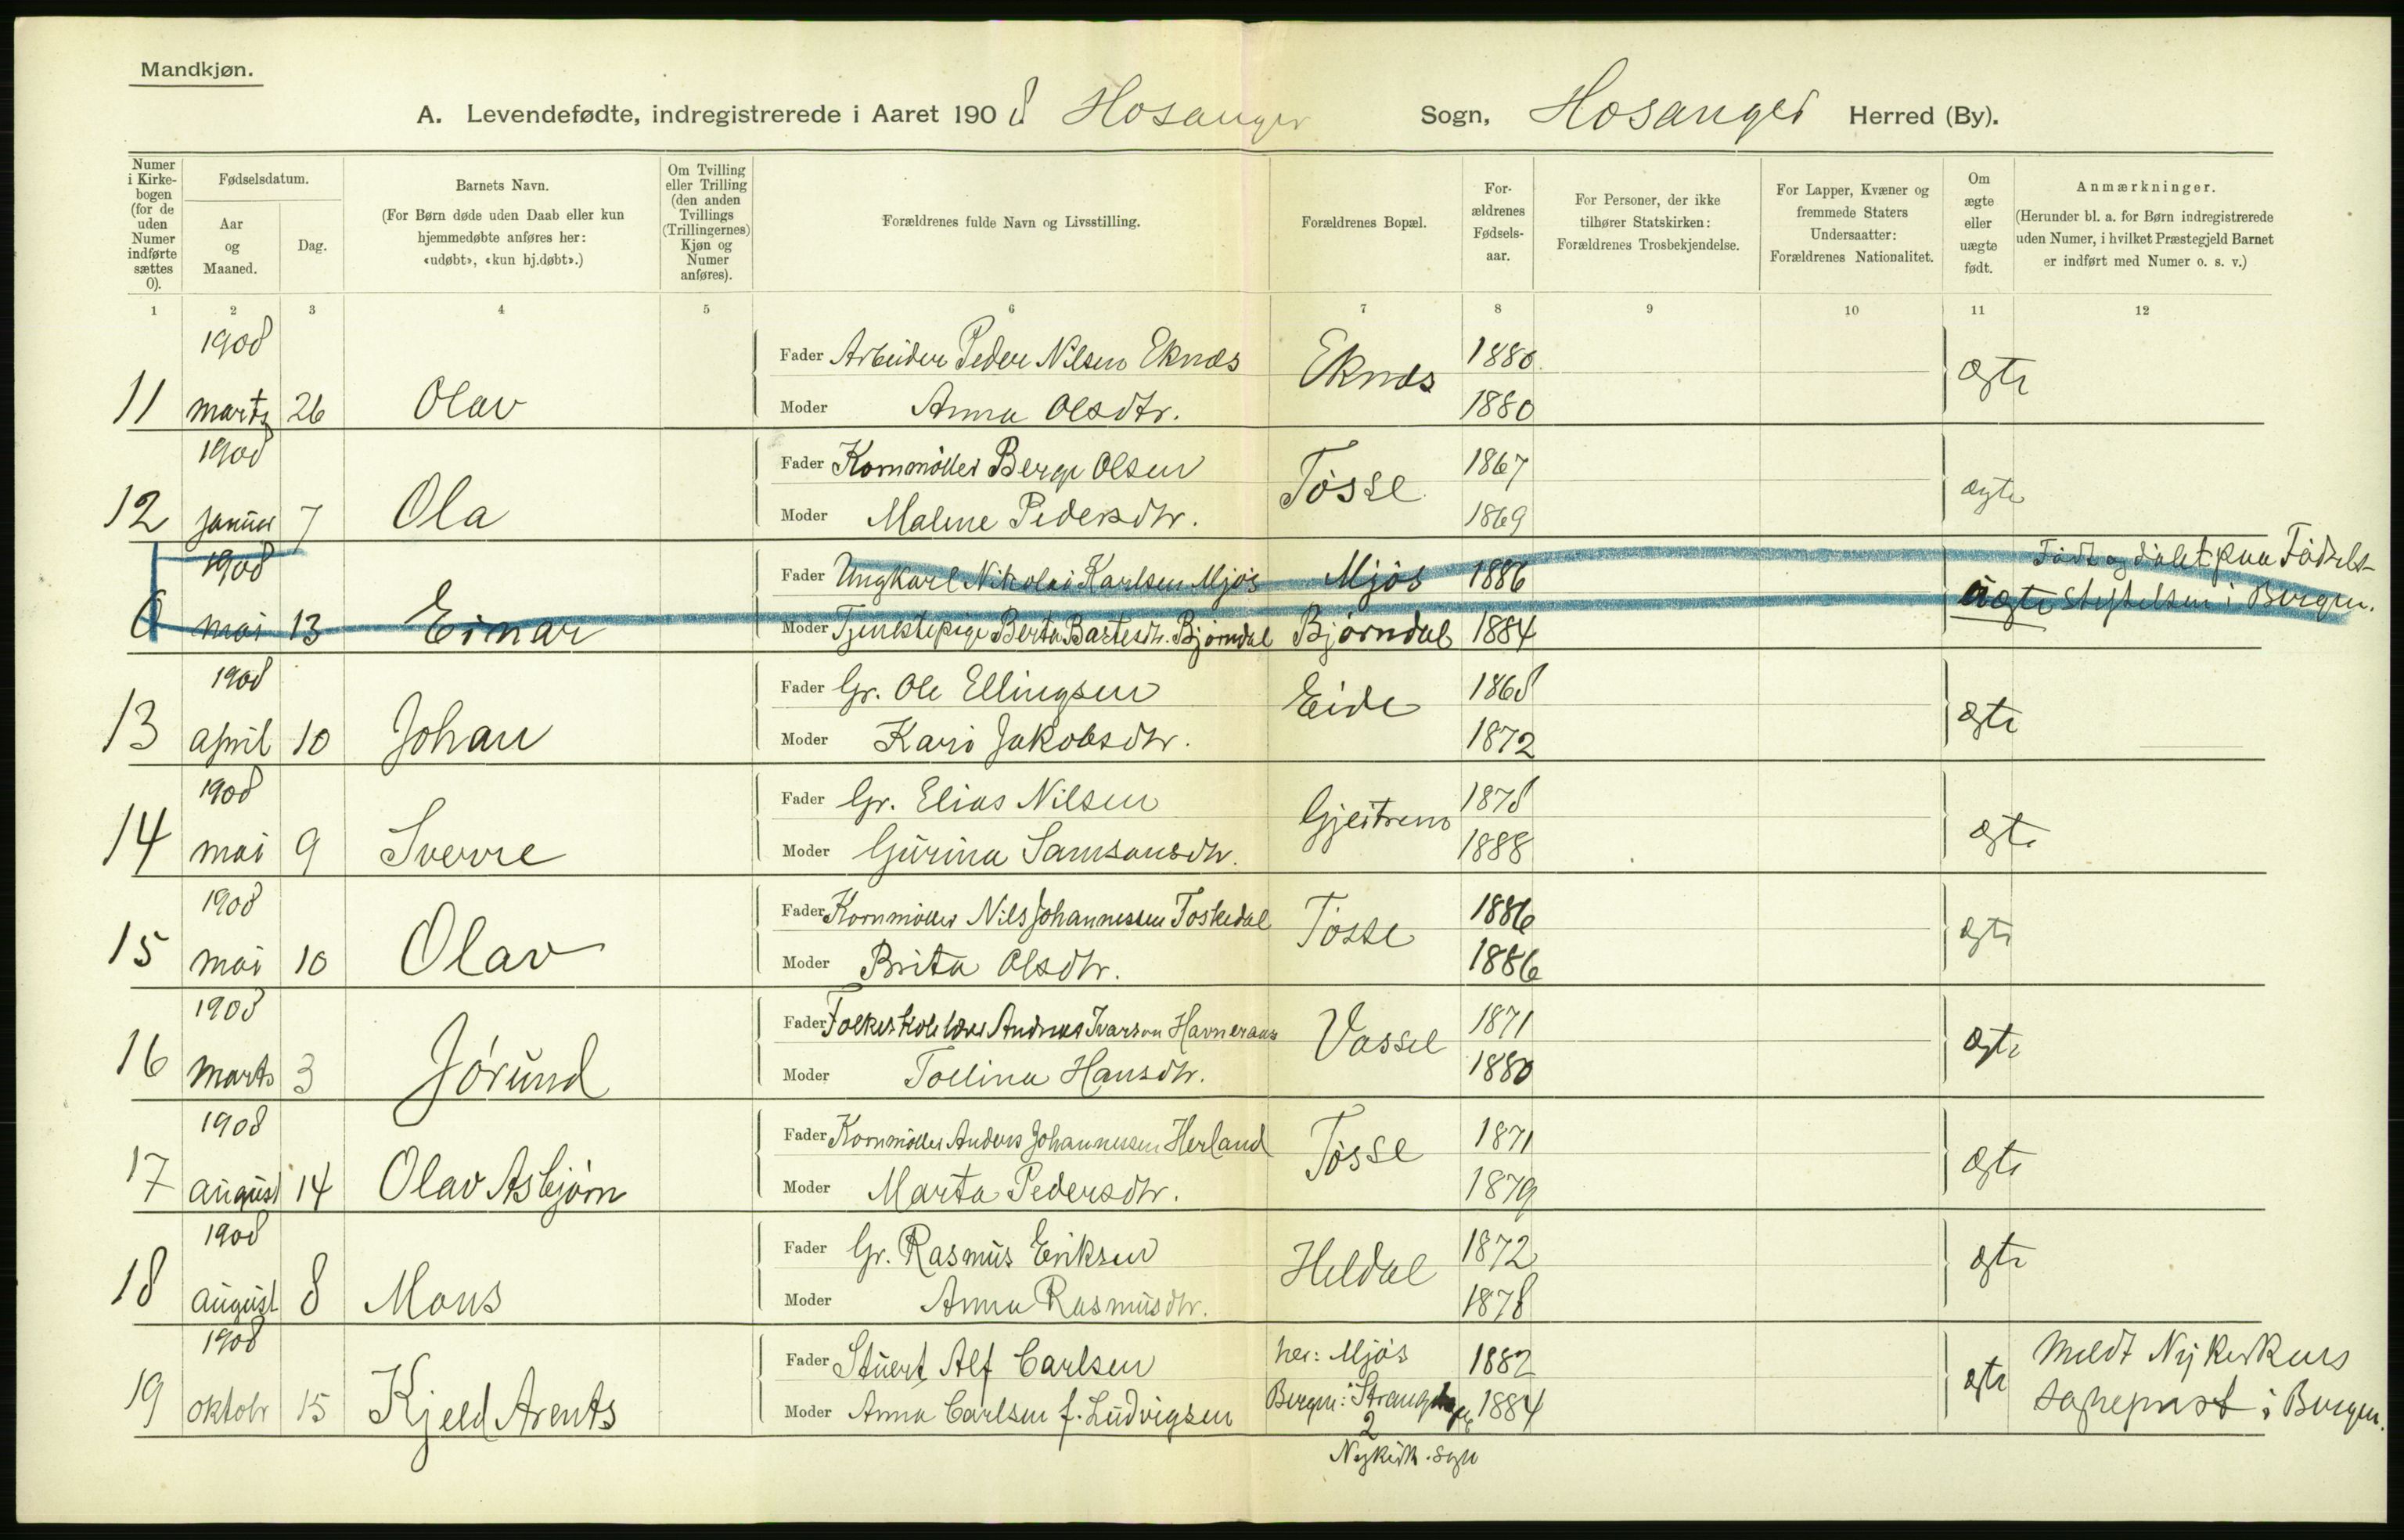 Mandkjøn.
A. Levendefødte, indregistrerede i Aaret 1908 Hosanger Sogn, Hosanger Herred (By).
Numer i Kirkebogen (for de uden Numer indførte sættes 0).
Fødselsdatum.
Aar og Maaned.
Dag.
Barnets Navn.
(For Børn døde uden Daab eller kun hjemmedøbte anføres her: «udøbt», «kun hj.døbt».)
Om Tvilling eller Trilling (den anden Tvillings (Trillingernes) Kjøn og Numer anføres).
Forældrenes fulde Navn og Livsstilling.
Forældrenes Bopæl.
Forældrenes Fødselsaar.
For Personer, der ikke tilhører Statskirken: Forældrenes Trosbekjendelse.
For Lapper, Kvæner og fremmede Staters Undersaatter: Forældrenes Nationalitet.
Om ægte eller uægte født.
Anmærkninger.
(Herunder bl. a. for Børn indregistrerede uden Numer, i hvilket Præstegjeld Barnet er indført med Numer o. s. v.)
1 2 3 4 5 6 7 8 9 10 11 12
1908
11 marts 26 Olav
Fader Arbeider Peder Nilsen Eknæs Eknæs 1880 ægte
Moder Anna Olsdtr. 1880
1908
12 januar 7 Ola
Fader Kornmöller Berge Olsen Tösse 1867 ægte
Moder Malene Pedersdtr. 1869
1908
0 mai 13 Einar
Fader Ungkarl Nikolai Karlsen Mjös Mjös 1886 uægte Födt og döbt paa Födsels-
Moder Tjenestepige Berta Bartesdtr. Björndal Björndal 1884 stiftelsen i Bergen.
1908
13 april 10 Johan
Fader Gr. Ole Ellingsen Eide 1868 ægte
Moder Kari Jakobsdtr. 1872
1908
14 mai 9 Sverre
Fader Gr. Elias Nilsen 1878 ægte
Moder Gurina Samsonsdtr. 1888
1908
15 mai 10 Olav
Fader Kornmöller Nils Johannessen Toskedal Tösse 1886 ægte
Moder Brita Olsdtr. 1886
1908
16 marts 3 Jörund
Fader Folkeskolelærer Andreas Ivarson Havneraas Vassel 1871 ægte
Moder Tollina Hansdtr. 1880
1908
17 august 14 Olav Asbjörn
Fader Kornmöller Anders Johannessen Herland Tösse 1871 ægte
Moder Marta Pedersdtr. 1879
1908
18 august 8 Mons
Fader Gr. Rasmus Eriksen Heldal 1872 ægte
Moder Anna Rasmusdtr. 1878
1908
19 oktobr 15 Kjeld Arents
Fader Stuert Alf Carlsen her: Mjös 1882 ægte Meldt Nykirkens
Moder Anna Carlsen f. Ludvigsen Bergen: 1884 sogneprest i Bergen.
2
Nykirk. sogn